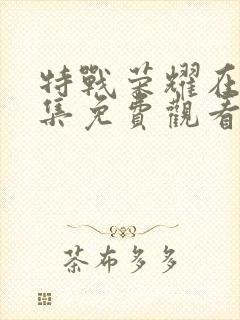 特戰荣耀在
集免費觀看
茶布多多